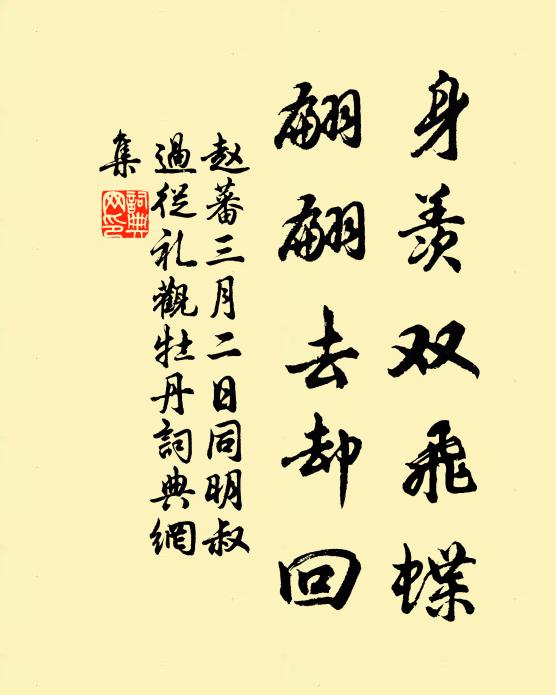 身羡双飛蝶
翩翩去却回
赵蕃三月二日同明叔
過從礼觀牡丹詞典網
集
詞典
网印